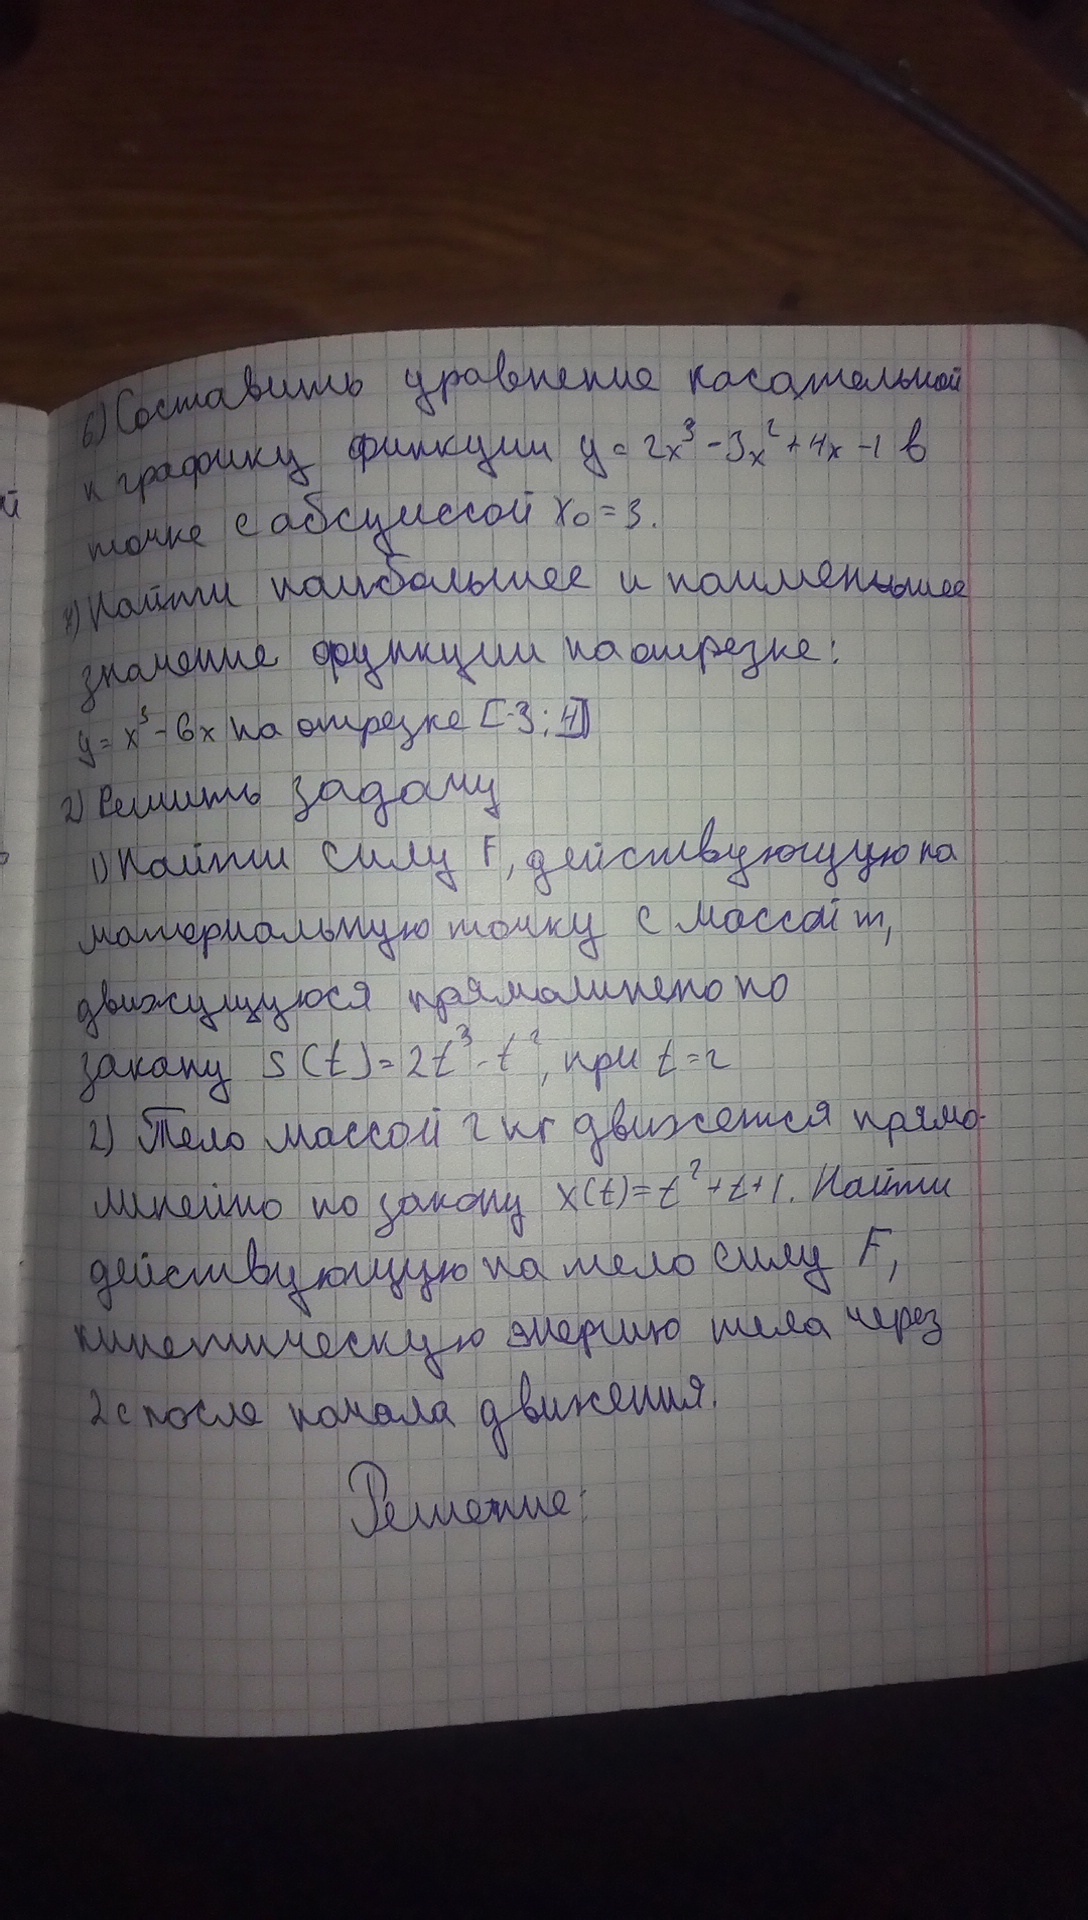 й
6) Составить уравнение касательной
к графику функции y = 2x³ - 3x² + 4x - 1 в
точке с абсциссой x₀ = 3.
7) Найти наибольшее и наименьшее
значение функции на отрезке:
y = x³ - 6x на отрезке [-3; 4]
2) Решить задачу
1) Найти силу F, действующую на
материальную точку с массой m,
движущуюся прямолинено по
закону S(t) = 2t³ - t², при t = 2
2) Тело массой 2 кг движется прямо-
линейно по закону x(t) = t² + t + 1. Найти
действующую на тело силу F,
кинетическую энергию тела через
2с после начала движения.
Решение: